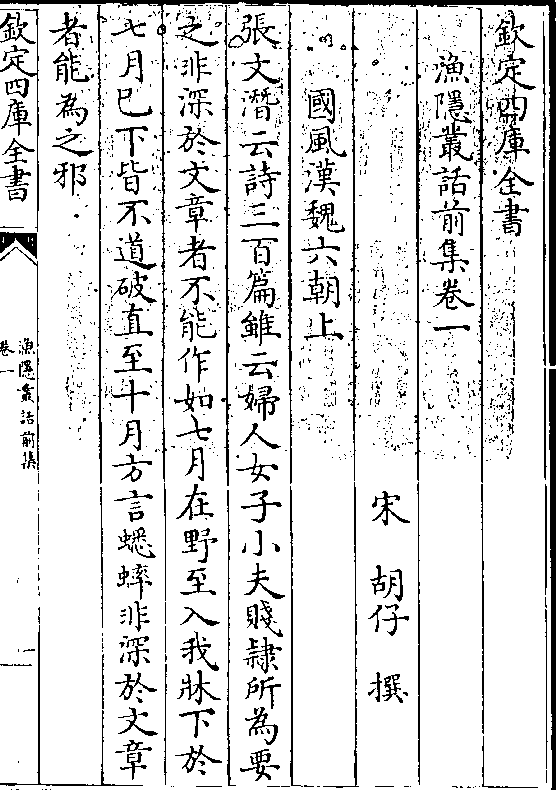 欽定四庫全書
漁隱叢話前集卷一
宋 胡仔 撰
國風漢魏六朝上
張文潛云詩三百篇雖云婦人女子小夫賤隸所為要
之非深於文章者不能作如七月在野至入我牀下於
七月已下皆不道破直至十月方言蟋蟀非深於文章
者能為之邪
欽定四庫全書
漁隱叢話前集
卷一
一